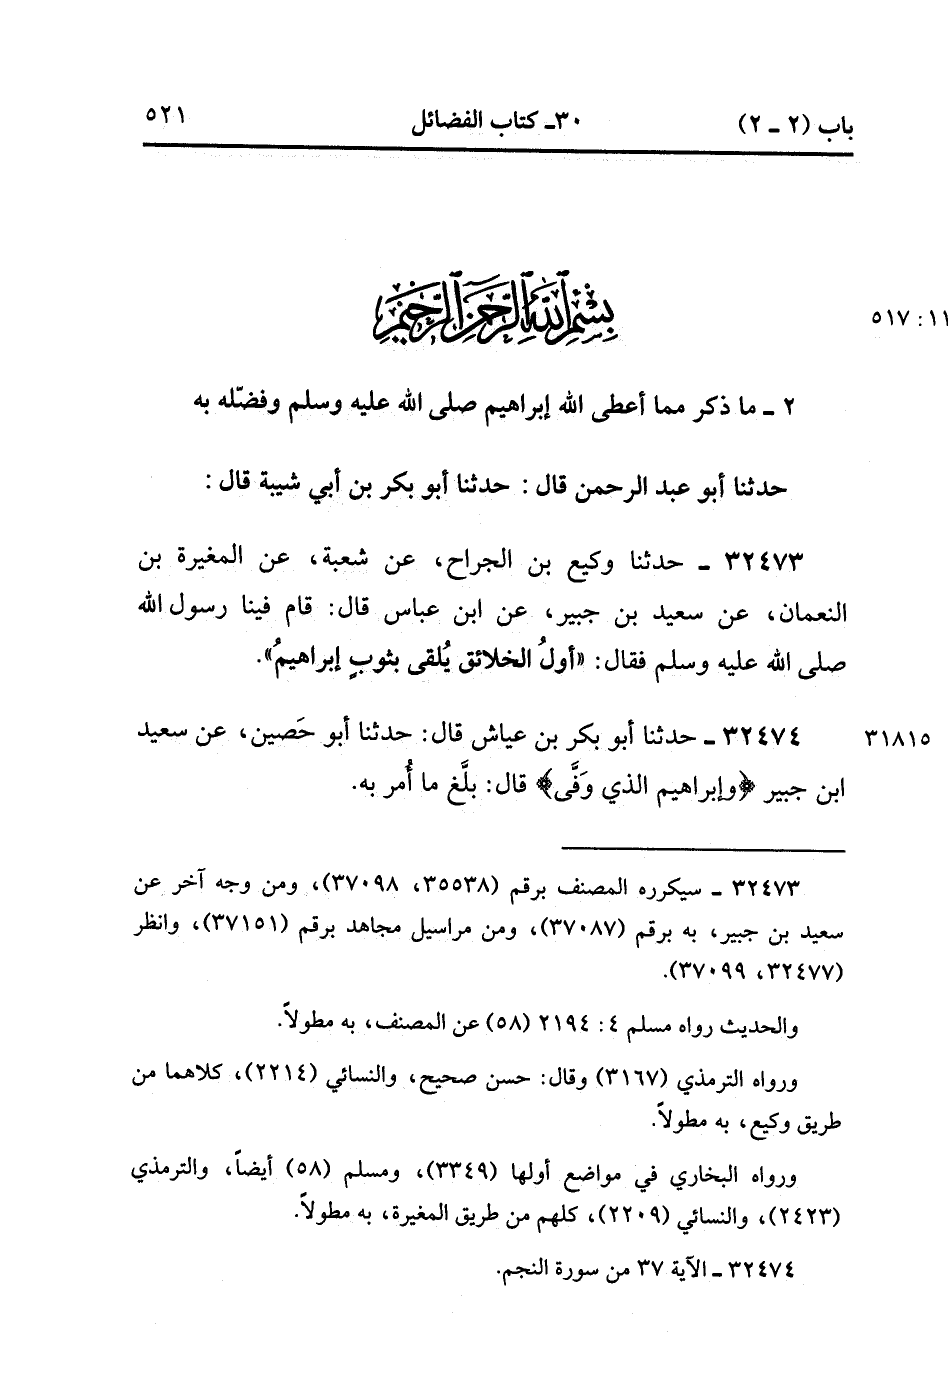 باب (٢ ـ ٢) ٣٠ـ كتاب الفضائل ٥٢١
١١ : ٥١٧ بسم الله الرحمن الرحيم
٢ ـ ما ذكر مما أعطى الله إبراهيم صلى الله عليه وسلم وفضّله به
حدثنا أبو عبد الرحمن قال : حدثنا أبو بكر بن أبي شيبة قال :
٣٢٤٧٣ ـ حدثنا وكيع بن الجراح، عن شعبة، عن المغيرة بن
النعمان، عن سعيد بن جبير، عن ابن عباس قال: قام فينا رسول الله
صلى الله عليه وسلم فقال: «أولُ الخلائق يُلقى بثوبٍ إبراهيمُ».
٣١٨١٥ ٣٢٤٧٤ ـ حدثنا أبو بكر بن عياش قال: حدثنا أبو حَصين، عن سعيد
ابن جبير ﴿وإبراهيم الذي وَفَّى﴾ قال: بلَّغ ما أُمر به.
٣٢٤٧٣ ـ سيكرره المصنف برقم (٣٥٥٣٨، ٣٧٠٩٨)، ومن وجه آخر عن
سعيد بن جبير، به برقم (٣٧٠٨٧)، ومن مراسيل مجاهد برقم (٣٧١٥١)، وانظر
(٣٢٤٧٧، ٣٧٠٩٩).
والحديث رواه مسلم ٤: ٢١٩٤ (٥٨) عن المصنف، به مطولاً.
ورواه الترمذي (٣١٦٧) وقال: حسن صحيح، والنسائي (٢٢١٤)، كلاهما من
طريق وكيع، به مطولاً.
ورواه البخاري في مواضع أولها (٣٣٤٩)، ومسلم (٥٨) أيضاً، والترمذي
(٢٤٢٣)، والنسائي (٢٢٠٩)، كلهم من طريق المغيرة، به مطولاً.
٣٢٤٧٤ ـ الآية ٣٧ من سورة النجم.